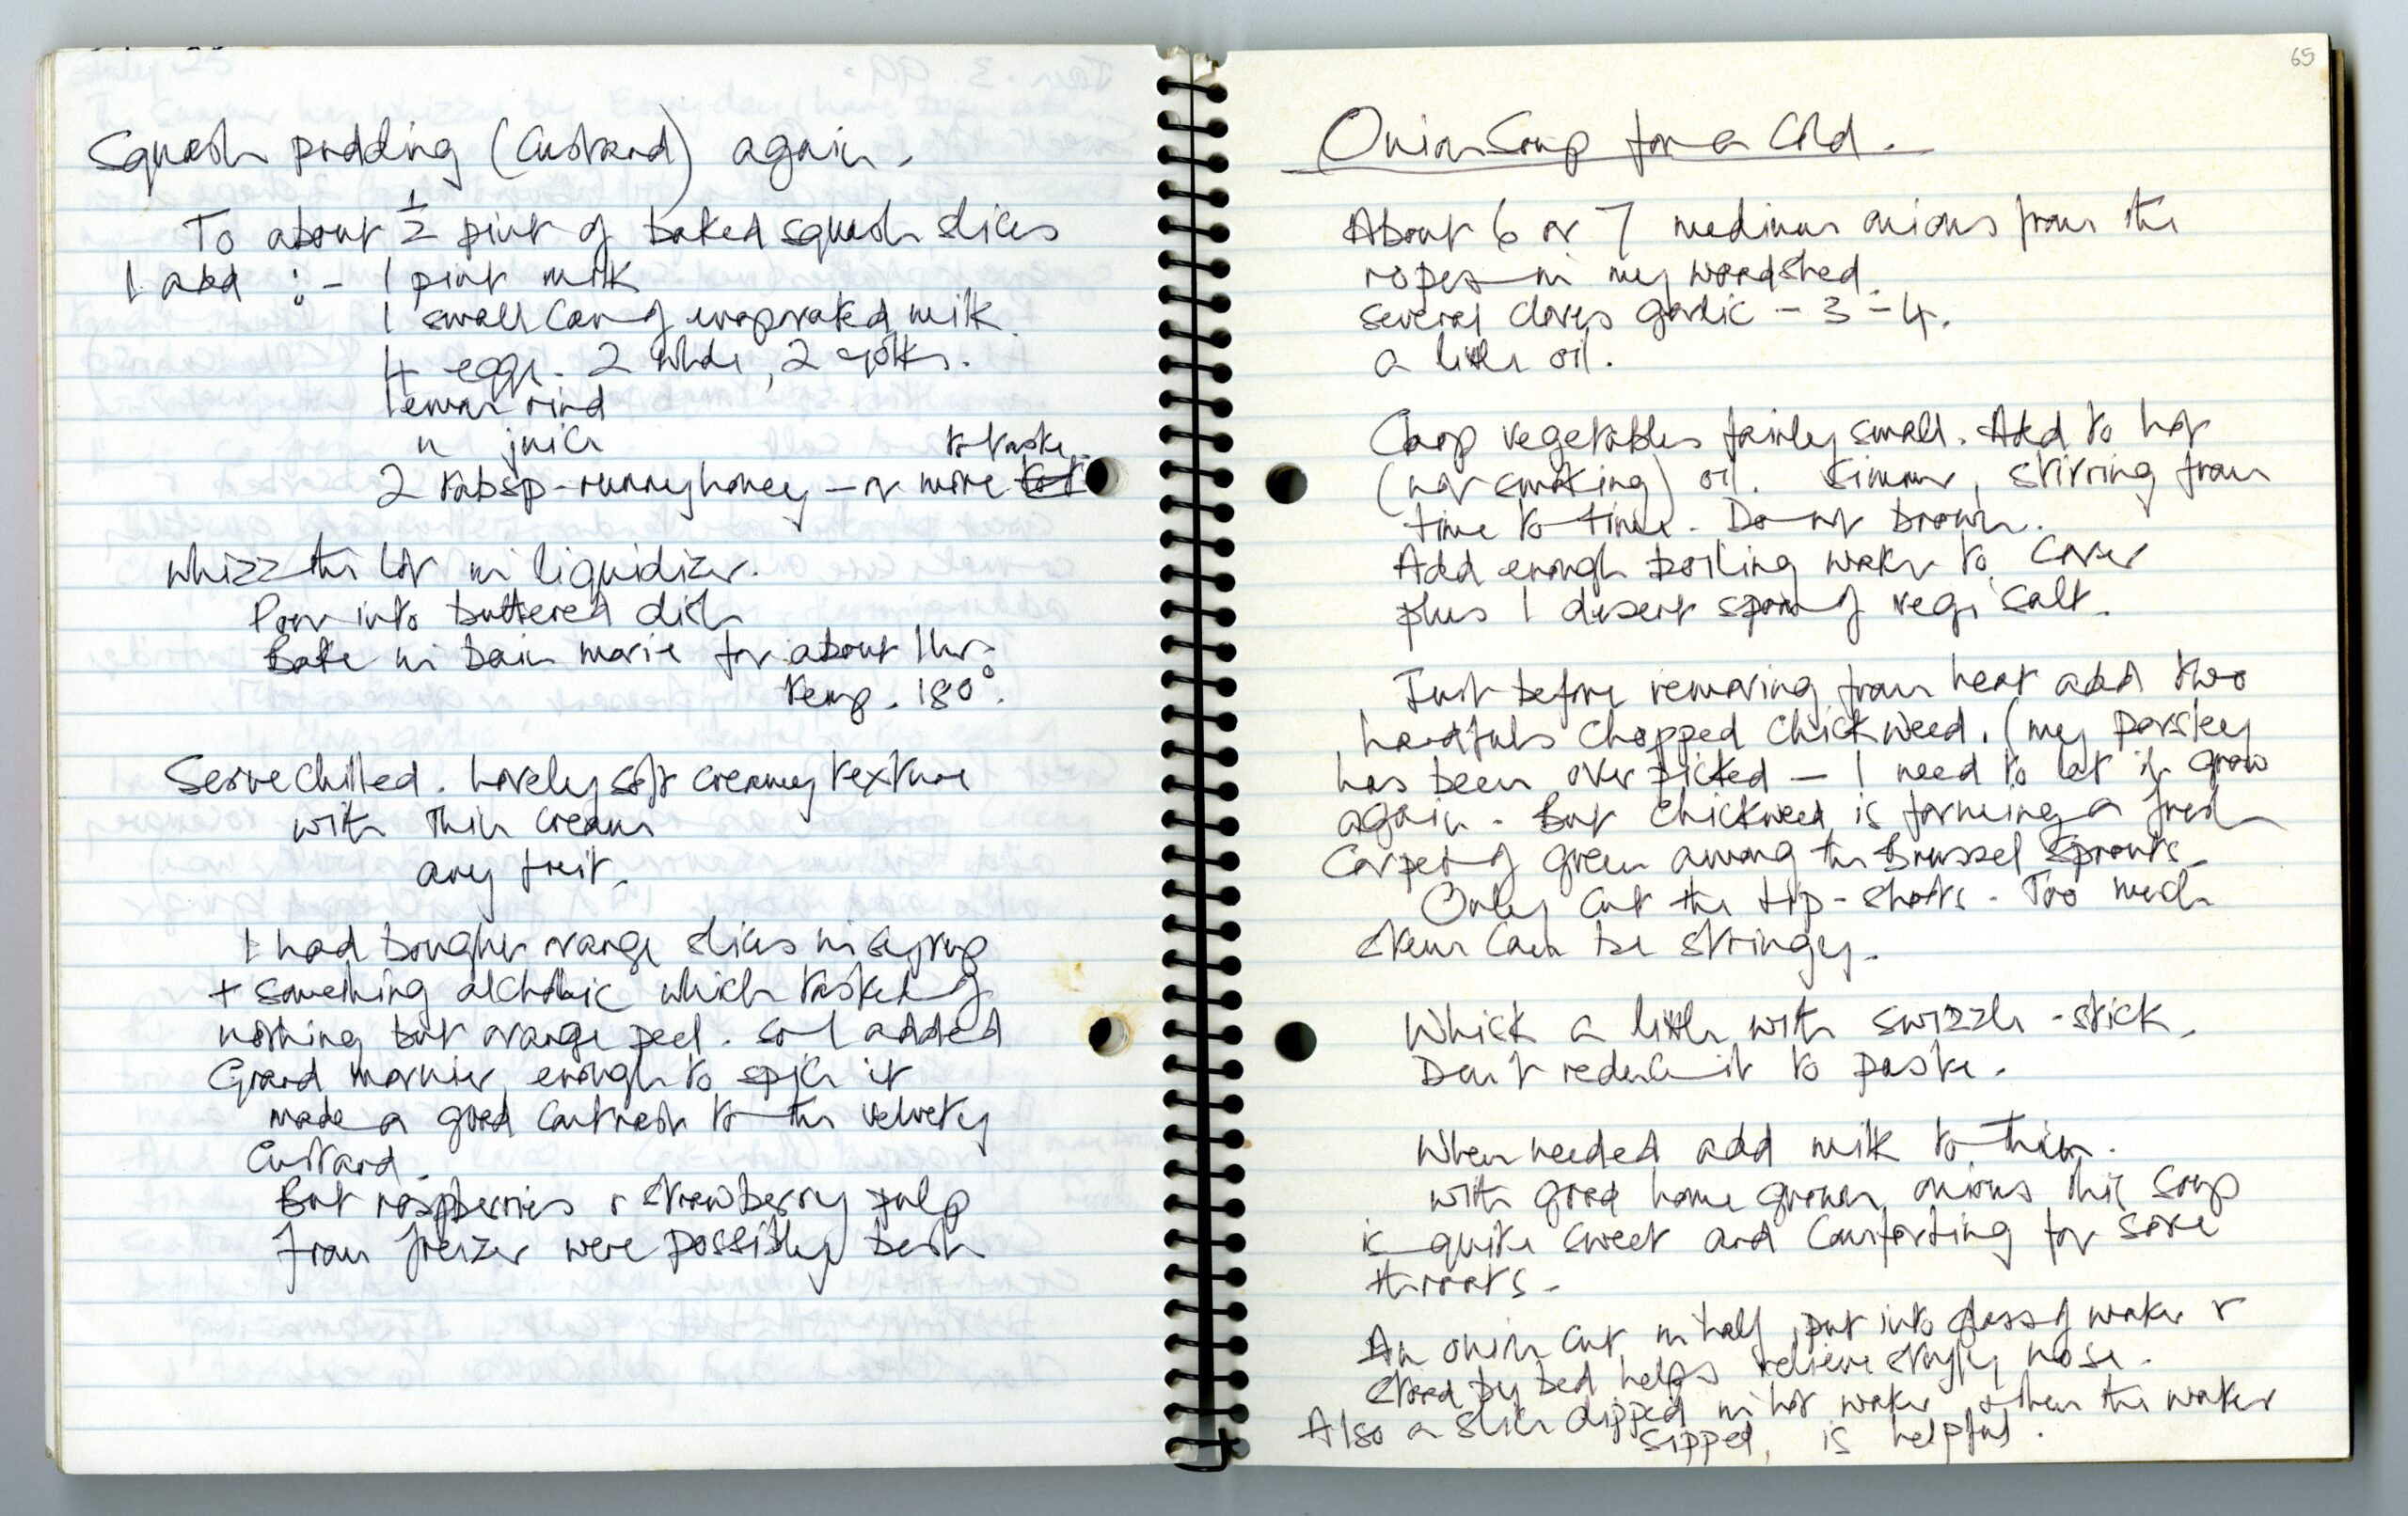 Squash pudding (Custard) again.
To about ½ pint of baked squash slices
I add :- 1 pint milk
1 small can of evaporated milk.
4 eggs. 2 whole, 2 yolks.
lemon rind
" juice
to taste.
2 tabsp - runny honey - or more
Whizz the lot in liquidizer.
Pour into buttered dish
Bake in bain marie for about 1 hr.
Temp. 180°.
Serve chilled. Lovely soft creamy texture
with thin cream
any fruit.
I had bought orange slices in syrup
+ something alcholic which tasted of
nothing but orange peel. So I added
Grand marnier enough to spice it
made a good contrast to the velvety
Custard.
But raspberries & strawberry pulp
from freezer were possibly best
65
Onion Soup for a Cold.
About 6 or 7 medium onions from the
ropes in my woodshed.
several cloves garlic - 3 - 4.
a little oil.
Chop vegetables fairly small. Add to hot
(not smoking) oil. Simmer, stirring from
time to time. Do not brown.
Add enough boiling water to cover
plus 1 desert spoon of vegi salt.
Just before removing from heat add two
handfuls chopped chickweed. (my parsley
has been over picked — I need to let it grow
again. But chickweed is forming a fresh
carpet of green among the Brussel Sprouts.
Only cut the tip-shoots. Too much
stem can be stringy.
Whisk a little with swizzle-stick.
Don't reduce it to paste.
When needed add milk to thin.
With good home grown onions this soup
is quite sweet and comforting for sore
throats.
An onion cut in half, put into glass of water &
stood by bed helps relieve stuffy nose.
Also a slice dipped in hot water & then the water
sipped, is helpful.